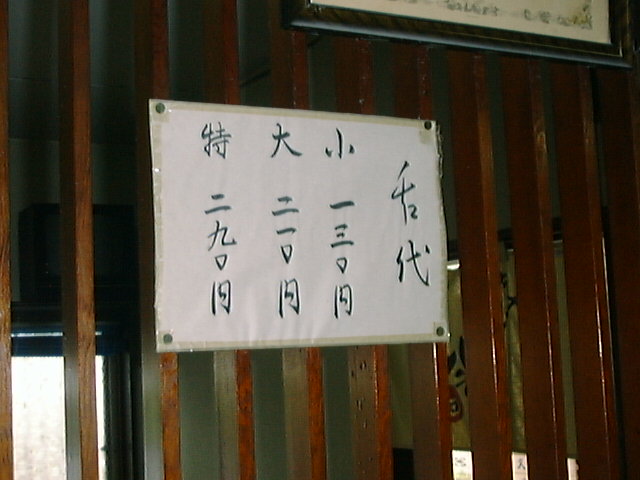 舌代
小 一三〇円
大 二一〇円
特 二九〇円